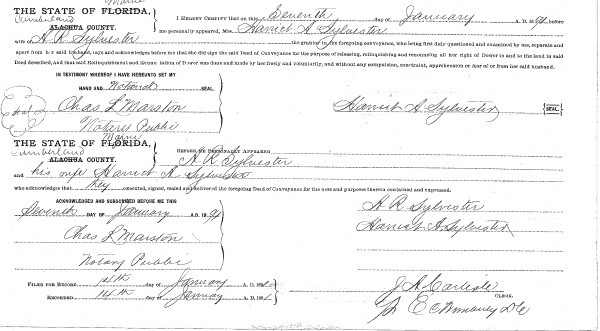 Maine
THE STATE OF FLORIDA,
Cumberland
ALACHUA COUNTY.
I HEREBY CERTIFY that on this Seventh day of January A. D. 1891, before
me personally appeared, Mrs. Harriet A Sylvester
wife of A R Sylvester the grantor in the foregoing conveyance, who being first duly questioned and examined by me, separate and
apart from her said husband, says and acknowledges before me that she did sign the said Deed of Conveyance for the purpose of releasing, relinquishing and renouncing all her right of Dower in and to the land in said
Deed described, and that said Relinquishment and Renunciation of Dower was done and made by her freely and voluntarily, and without any compulsion, constraint, apprehension or fear of or from her said husband.
IN TESTIMONY WHEREOF I HAVE HEREUNTO SET MY
HAND AND Notarial SEAL.
Seal
Chas L Marston
Notary Public
Harriet A Sylvester SEAL.
Maine
THE STATE OF FLORIDA,
Cumberland
ALACHUA COUNTY.
BEFORE ME PERSONALLY APPEARED
A R Sylvester
and his wife Harriet A Sylvester
who acknowledges that they executed, signed and delivered the foregoing Deed of Conveyance for the uses and purposes therein contained and expressed.
ACKNOWLEDGED AND SUBSCRIBED BEFORE ME THIS
Seventh DAY OF January A.D. 1891
Chas L Marston
Notary Public
A R Sylvester
Harriet A Sylvester
FILED FOR RECORD 14th day of January A. D. 189
RECORDED 14th day of January A. D. 189
J A Carlisle
CLERK.